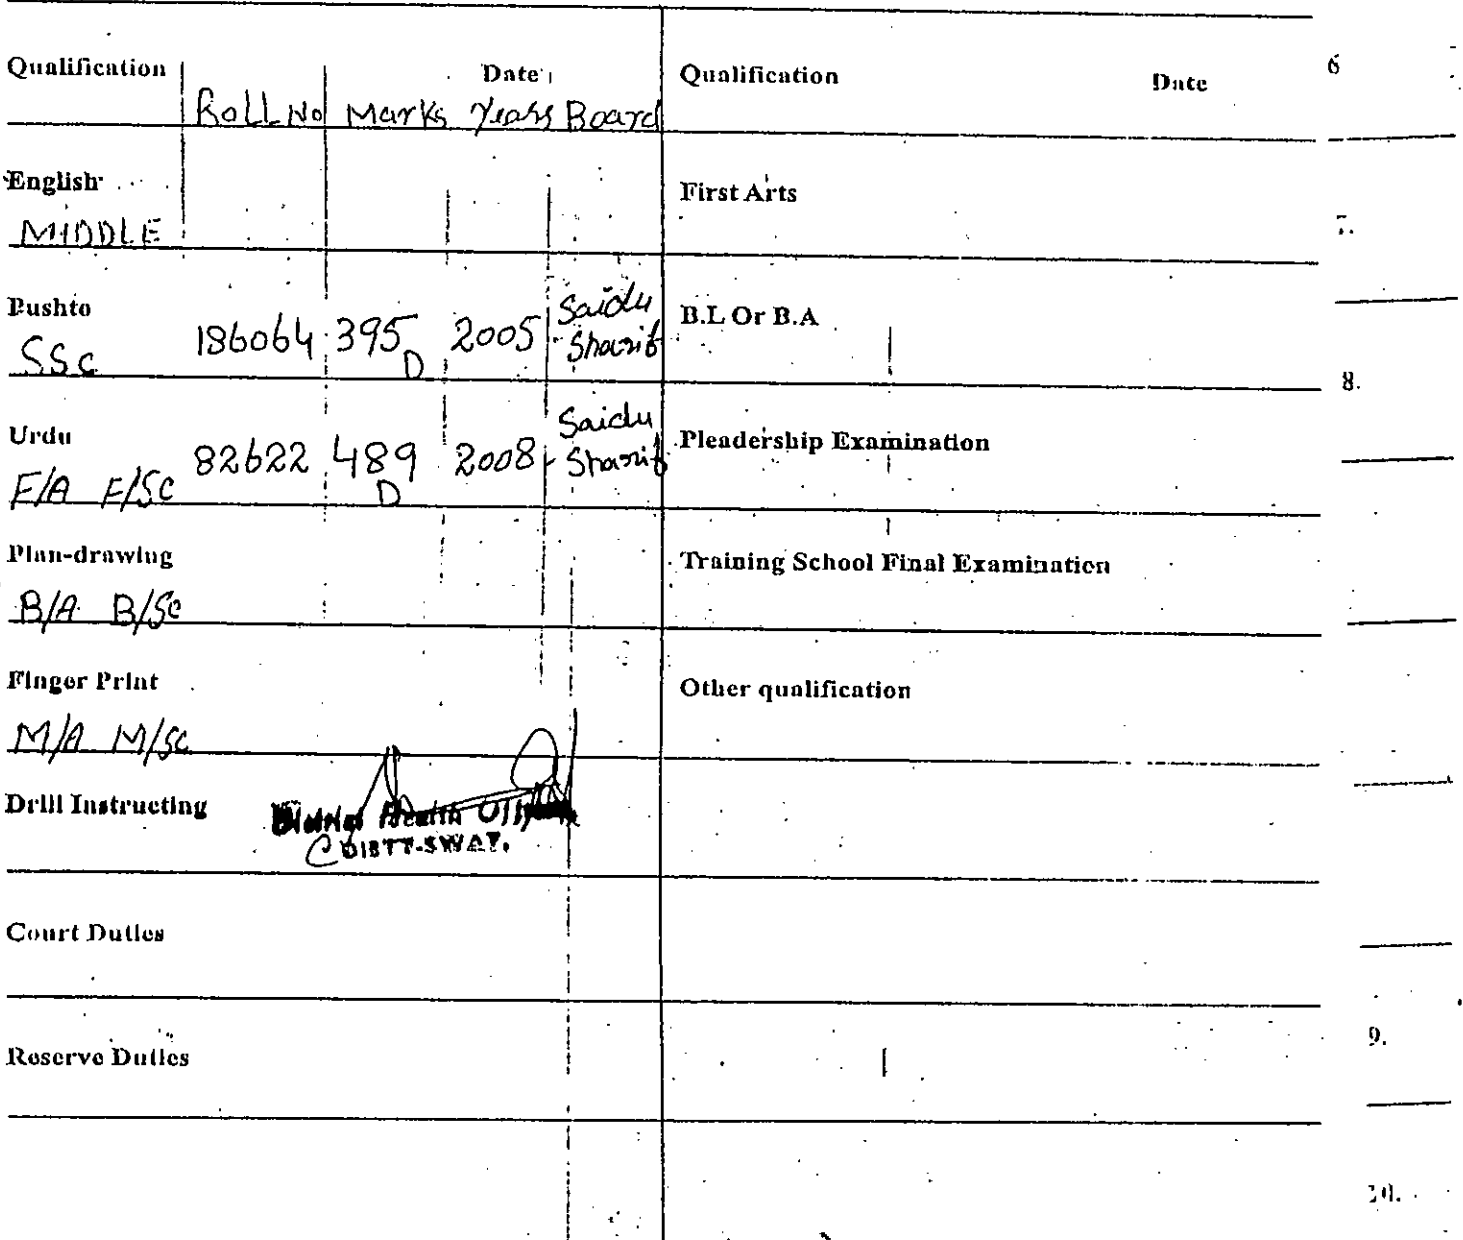 Qualification Date
Roll No Marks Years Board
English
MIDDLE
Pushto
SSc 186064 395 D 2005 Saidu Sharif
Urdu
F/A F/Sc 82622 489 D 2008 Saidu Sharif
Plan-drawing
B/A B/Sc
Finger Print
M/A M/Sc
Drill Instructing
District Health
DISTT-SWAT.
Court Duties
Reserve Duties
Qualification Date
First Arts
B.L Or B.A
Pleadership Examination
Training School Final Examination
Other qualification
6
7.
8.
9.
10.